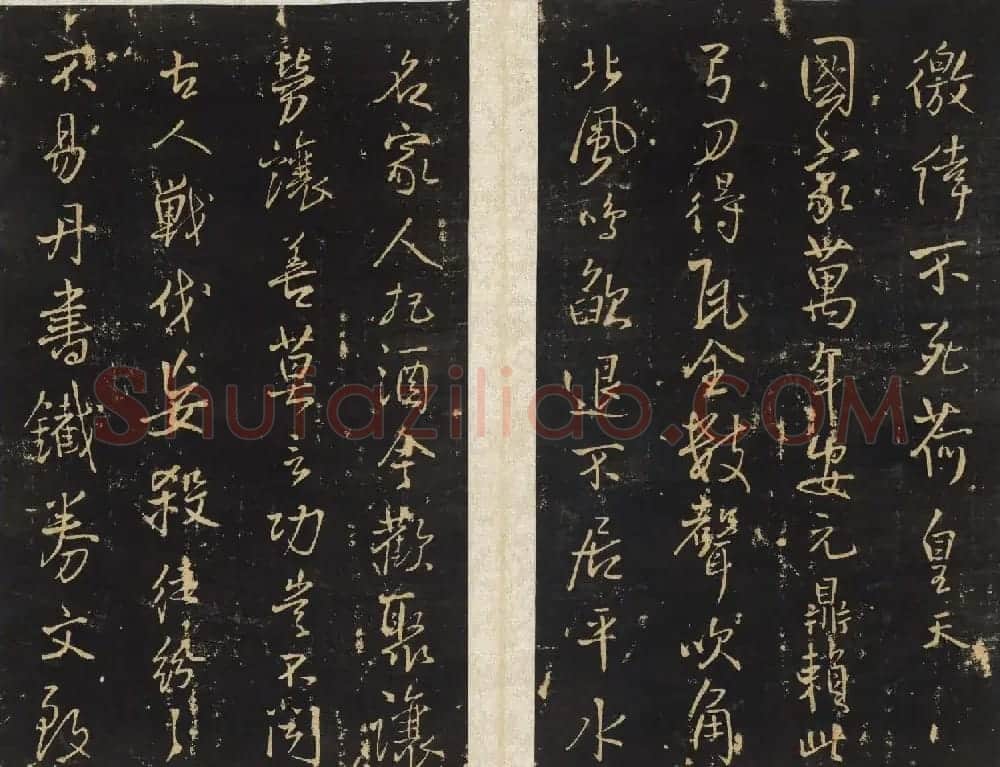 徼倖不死荷皇天
國家萬年元鼎賴此
弓刀得瓦全數聲吹角
北風鳴退不居平水
名家人把酒歡聚讓
勞讓善莫言功豈不聞
古人戰伐妄殺徒紛〻
不易丹書鐵券文致
Shufaziliao.COM